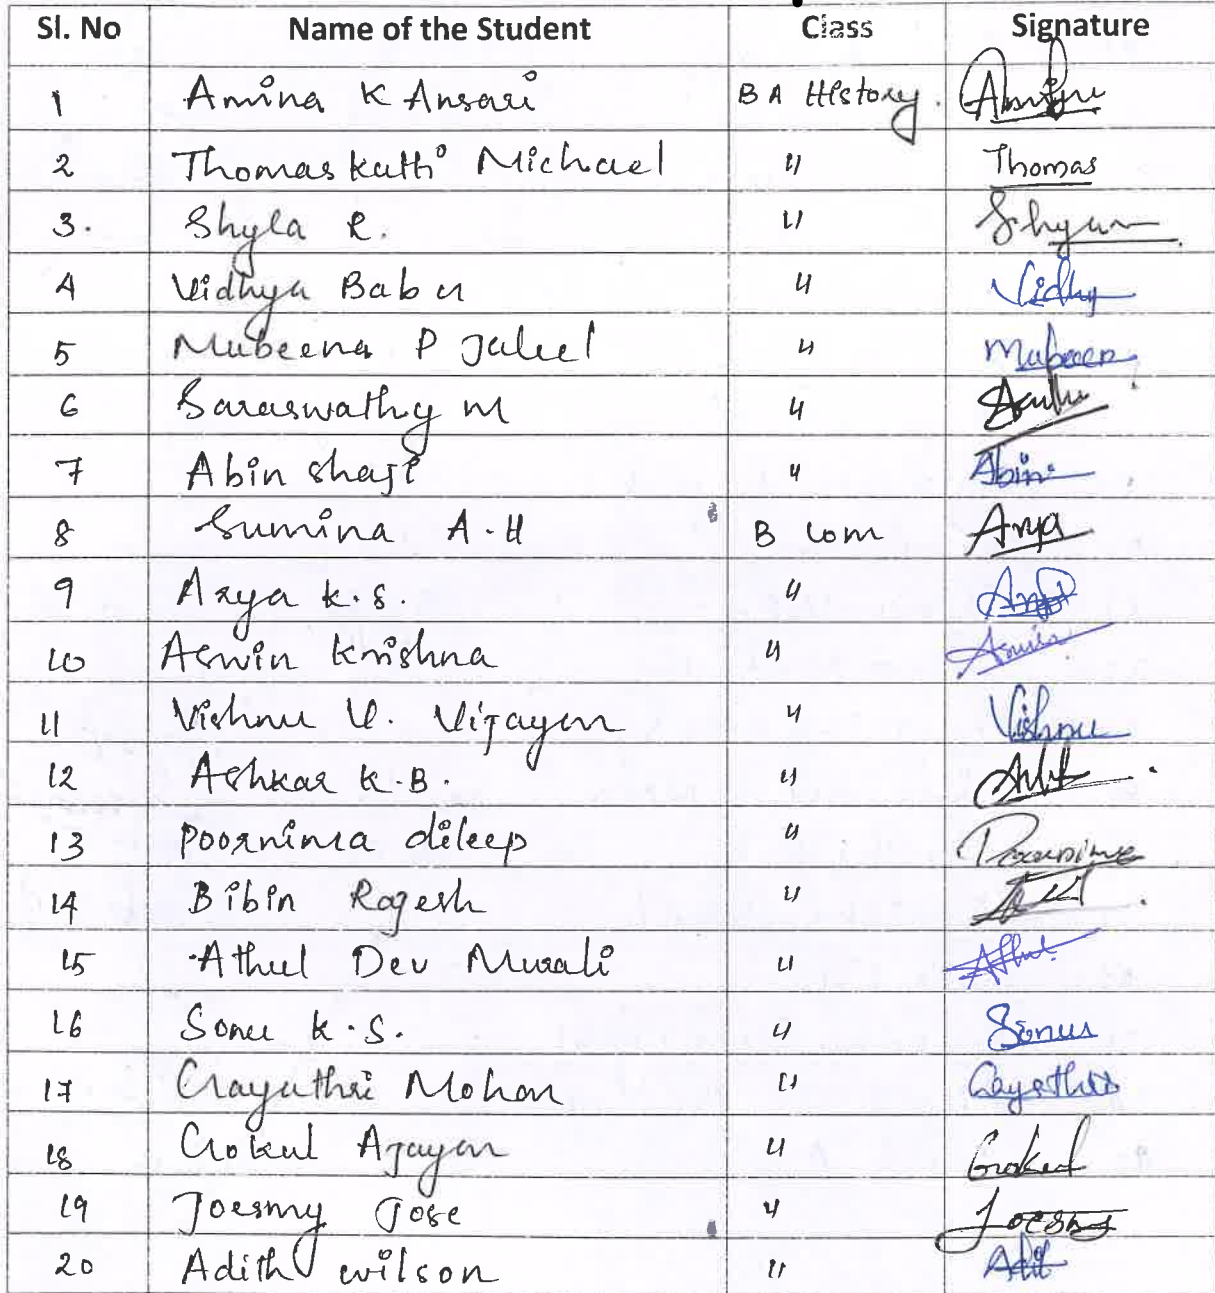 Sl. No Name of the Student Class Signature
1 Amina K Ansari B A History.
2 Thomaskutti Michael " Thomas
3. Shyla R. "
4 Vidhya Babu " Vidhy
5 Mubeena P Jaleel " Mubeen
6 Saraswathy M "
7 Abin shaji " Abin
8 Sumina A.H B Com Arya
9 Arya K.S. "
10 Aswin Krishna " Aswin
11 Vishnu V. Vijayan " Vishnu
12 Ashkar K.B. "
13 Poornima dileep " Poornima
14 Bibin Rajesh "
15 Athul Dev Murali " Athul
16 Sonu K.S. " Sonu
17 Gayathri Mohan " Gayathri
18 Gokul Ajayan " Gokul
19 Joesmy Jose " Joesmy
20 Adith wilson "